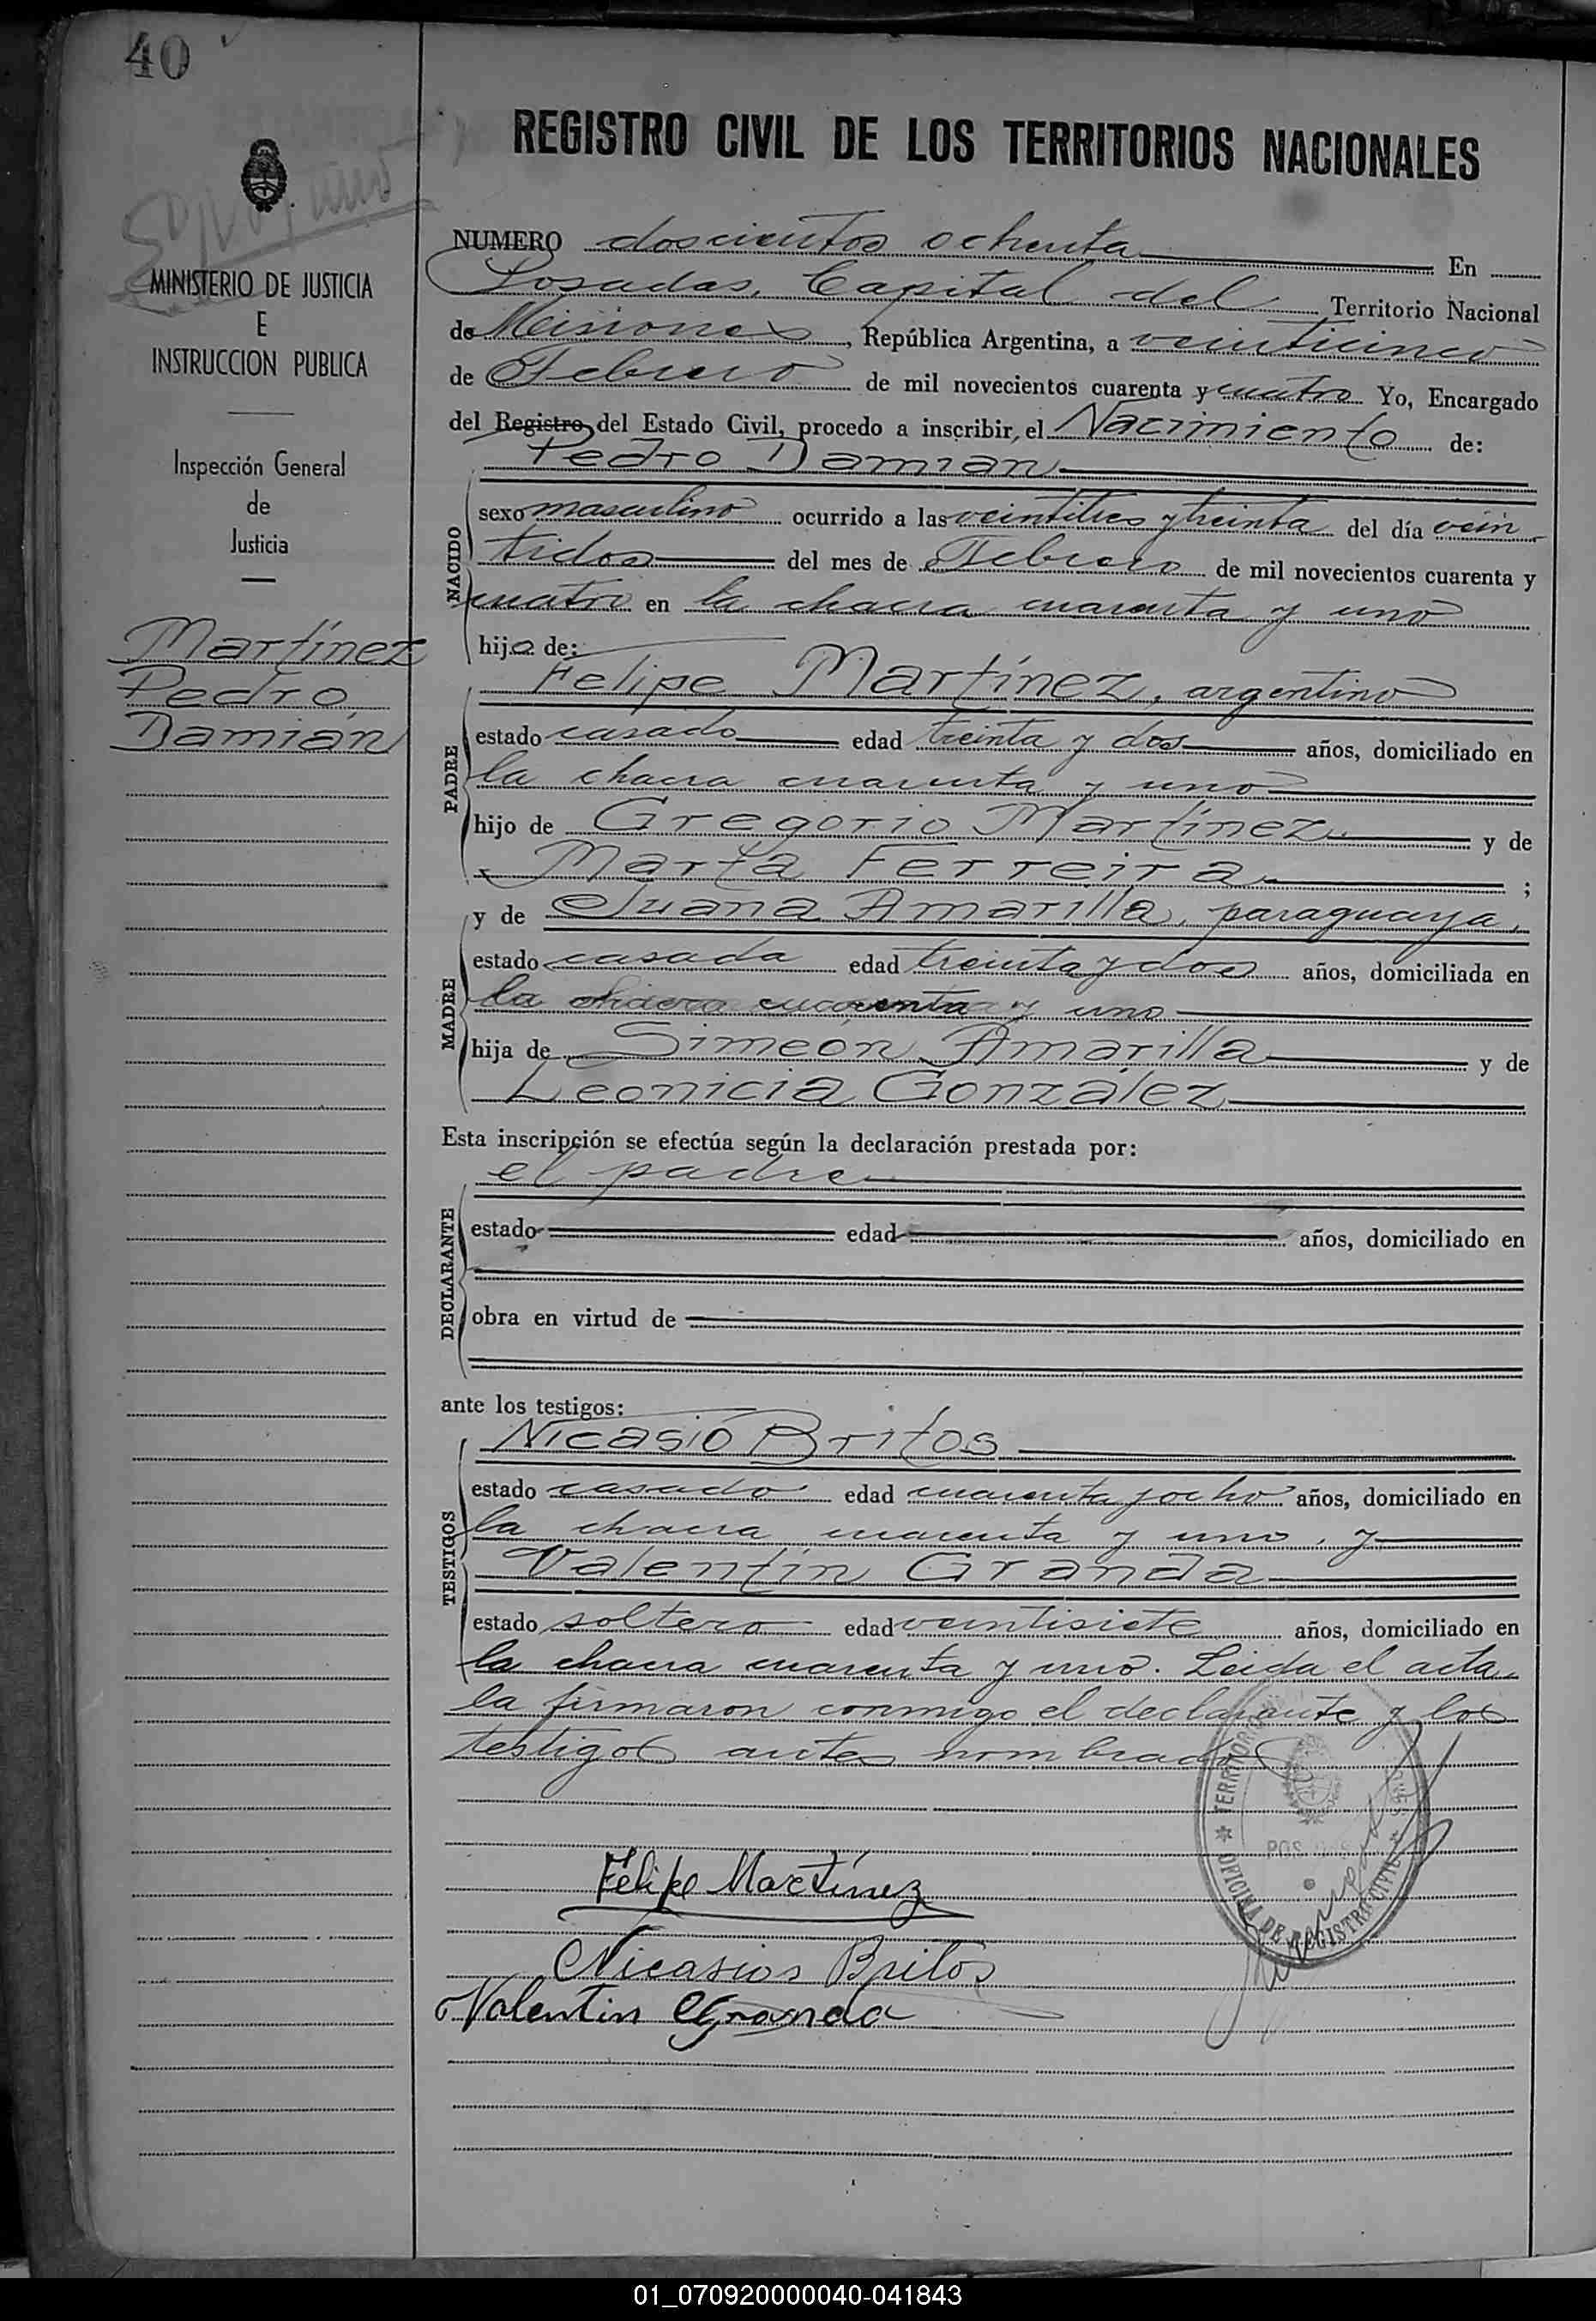 40
REGISTRO CIVIL DE LOS TERRITORIOS NACIONALES
MINISTERIO DE JUSTICIA
E
INSTRUCCION PUBLICA
Inspección General
de
Justicia
Martínez
Pedro
Damián
NUMERO doscientos ochenta En
Posadas, Capital del Territorio Nacional
de Misiones, República Argentina, a veinticinco
de Febrero de mil novecientos cuarenta y cuatro Yo, Encargado
del Registro del Estado Civil, procedo a inscribir, el Nacimiento de:
Pedro Damian
NACIDO
sexo masculino ocurrido a las veintitres y treinta del día vein
tidos del mes de Febrero de mil novecientos cuarenta y
cuatro en la chacra cuarenta y uno
hijo de:
PADRE
Felipe Martínez, argentino
estado casado edad treinta y dos años, domiciliado en
la chacra cuarenta y uno
hijo de Gregorio Martínez y de
Marta Ferreira ;
MADRE
y de Juana Amarilla, paraguaya,
estado casada edad treinta y dos años, domiciliada en
la chacra cuarenta y uno
hija de Simeón Amarilla y de
Leonicia González
Esta inscripción se efectúa según la declaración prestada por:
DECLARANTE
el padre
estado edad años, domiciliado en
obra en virtud de
ante los testigos:
TESTIGOS
Nicasio Britos
estado casado edad cuarenta y ocho años, domiciliado en
la chacra cuarenta y uno, y
Valentín Granda
estado soltero edad veintisiete años, domiciliado en
la chacra cuarenta y uno. Leida el acta,
la firmaron conmigo el declarante y los
testigos antes nombrados
Felipe Martínez
Nicasios Britos
Valentin Granda
OFICINA DE REGISTRO CIVIL
01_070920000040-041843